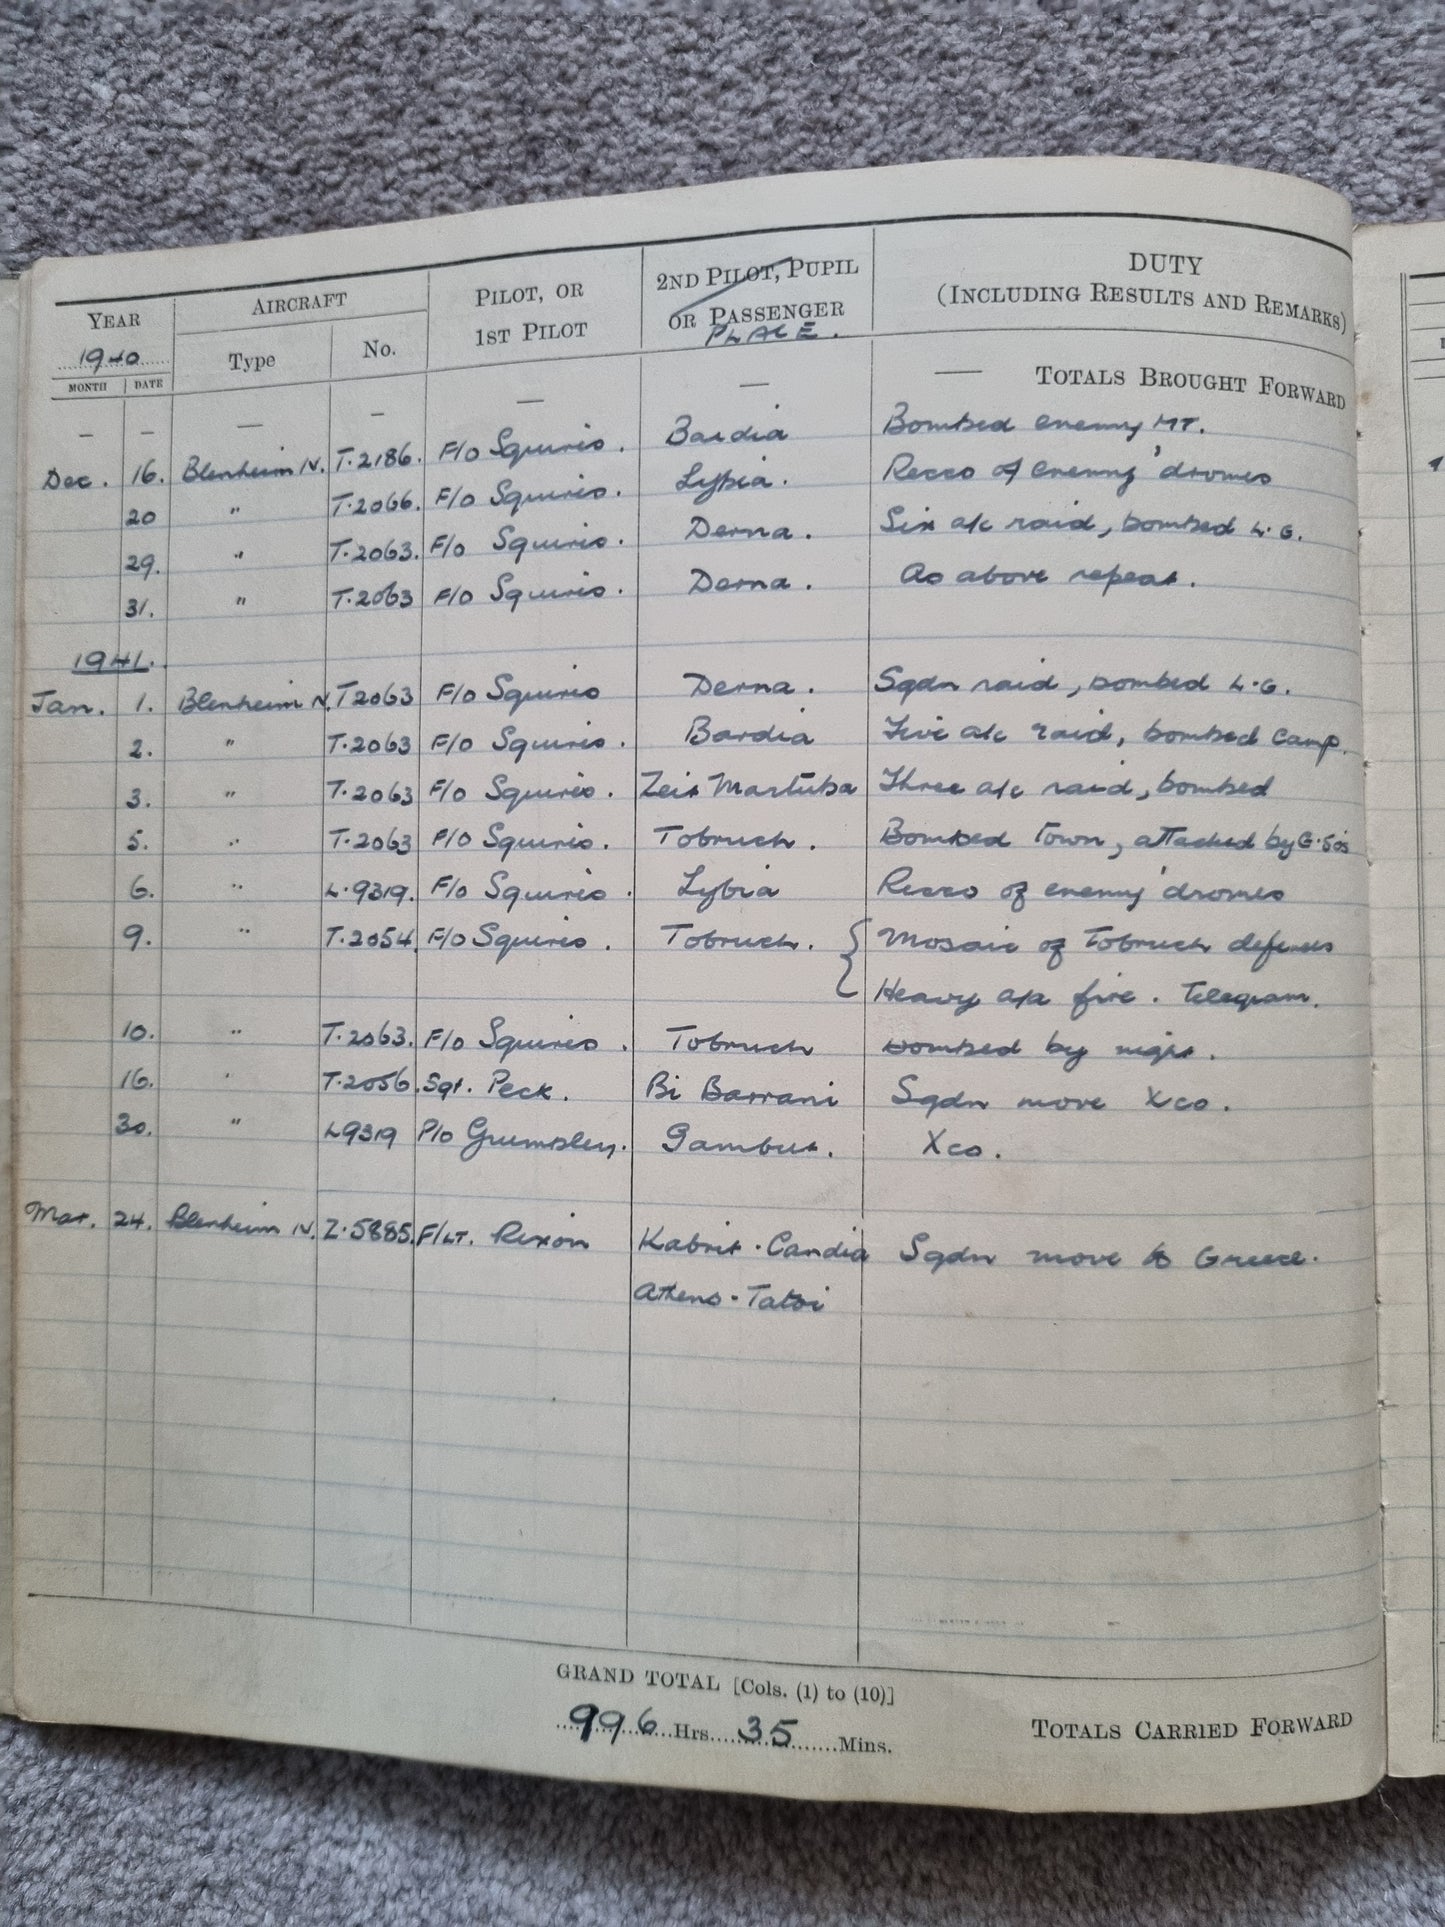 YEAR AIRCRAFT PILOT, OR 2ND PILOT, PUPIL DUTY
1940 Type No. 1ST PILOT OR PASSENGER (INCLUDING RESULTS AND REMARKS)
MONTH DATE PLACE.
— — — — — — — TOTALS BROUGHT FORWARD
Dec. 16. Blenheim IV. T.2186. F/o Squires. Bardia Bombed enemy MT.
20 " T.2066. F/o Squires. Lybia. Recco of enemy 'dromes
29. " T.2063. F/o Squires. Derna. Six a/c raid, bombed L.G.
31. " T.2063 F/o Squires. Derna. As above repeat.
1941.
Jan. 1. Blenheim IV. T2063 F/o Squires Derna. Sqdn raid, bombed L.G.
2. " T.2063 F/o Squires. Bardia Five a/c raid, bombed camp.
3. " T.2063 F/o Squires. Martuba Three a/c raid, bombed
5. " T.2063 F/o Squires. Tobruch. Bombed Town, attacked by G.50's
6. " L.9319. F/o Squires. Lybia Recco of enemy 'dromes
9. " T.2054. F/o Squires. Tobruch. { Mosaic of Tobruch defences
Heavy a/a fire. Telegram.
10. " T.2063. F/o Squires. Tobruch Bombed by night.
16. " T.2056. Sgt. Peck. Bi Barrani Sqdn move Xco.
30. " L9319 P/o Gambut. Xco.
Mar. 24. Blenheim IV. Z.5885. F/LT. Rixon Kabrit - Candia Sqdn move to Greece.
Athens - Tatoi
GRAND TOTAL [Cols. (1) to (10)]
996 Hrs. 35 Mins. TOTALS CARRIED FORWARD